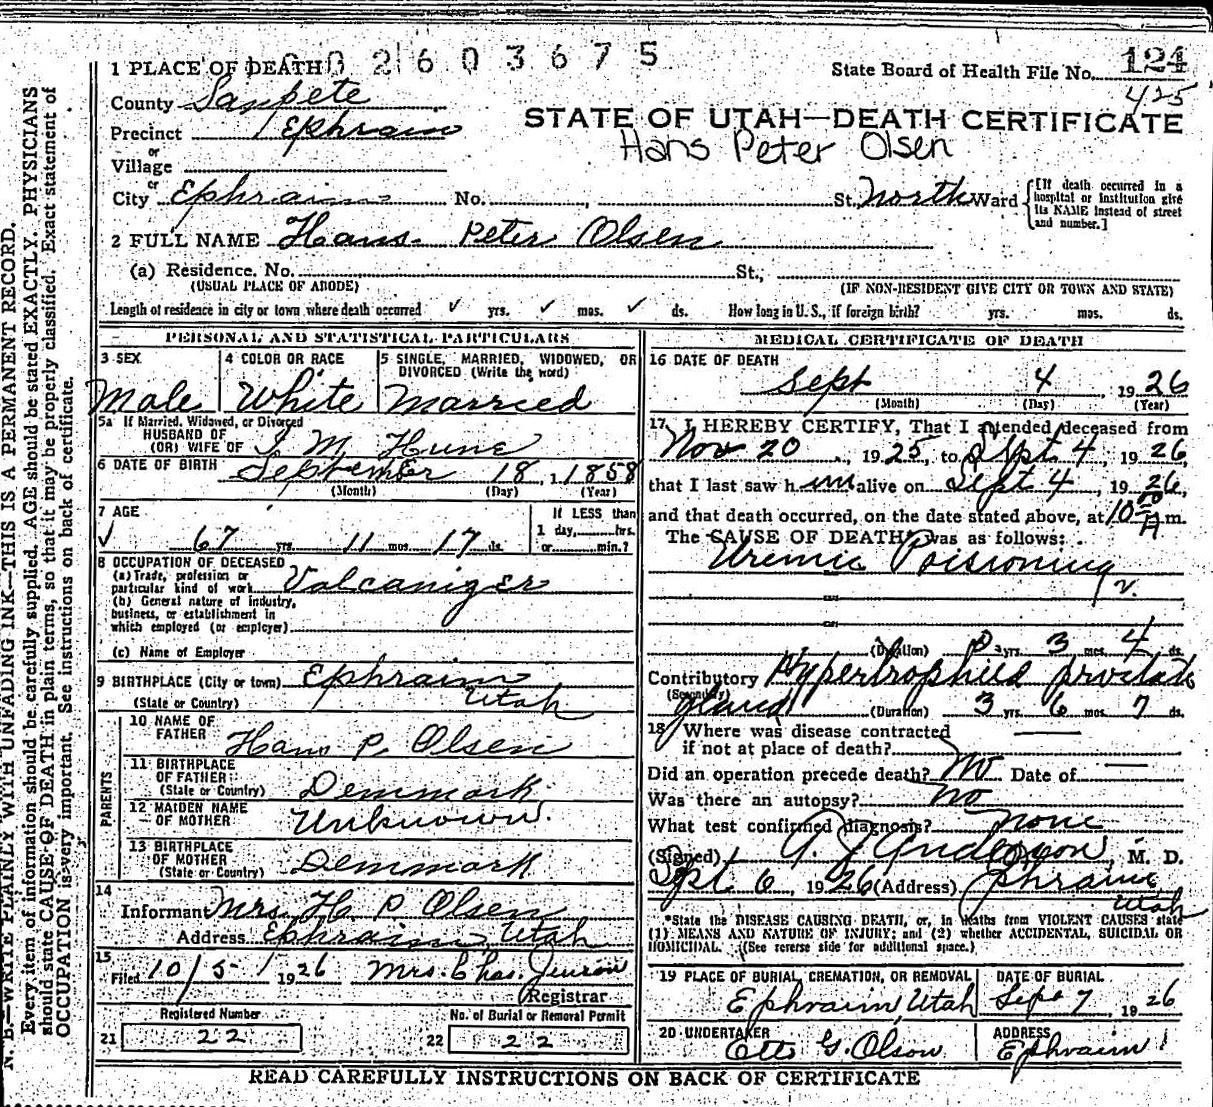 N. B.—WRITE PLAINLY WITH UNFADING INK—THIS IS A PERMANENT RECORD.
Every item of information should be carefully supplied. AGE should be stated EXACTLY. PHYSICIANS
should state CAUSE OF DEATH in plain terms, so that it may be properly classified. Exact statement of
OCCUPATION is very important. See instructions on back of certificate.
1 PLACE OF DEATH 002603675
State Board of Health File No. 124
425
County Sanpete
STATE OF UTAH—DEATH CERTIFICATE
Precinct Ephraim
Hans Peter Olsen
or
Village
or
City Ephraim No. , St. North Ward
[If death occurred in a
hospital or institution give
its NAME instead of street
and number.]
2 FULL NAME Hans Peter Olsen
(a) Residence. No. St.,
(USUAL PLACE OF ABODE) (IF NON-RESIDENT GIVE CITY OR TOWN AND STATE)
Length of residence in city or town where death occurred ✓ yrs. ✓ mos. ✓ ds. How long in U. S., if foreign birth? yrs. mos. ds.
PERSONAL AND STATISTICAL PARTICULARS
3 SEX
Male
4 COLOR OR RACE
White
5 SINGLE, MARRIED, WIDOWED, OR
DIVORCED (Write the word)
Married
5a If Married, Widowed, or Divorced
HUSBAND OF
(OR) WIFE OF M
6 DATE OF BIRTH September 18, 1858
(Month) (Day) (Year)
7 AGE
✓ 67 yrs. 11 mos. 17 ds.
If LESS than
1 day, hrs.
or min.?
8 OCCUPATION OF DECEASED
(a) Trade, profession or
particular kind of work Volcanizer
(b) General nature of industry,
business, or establishment in
which employed (or employer)
(c) Name of Employer
9 BIRTHPLACE (City or town) Ephraim
(State or Country) Utah
PARENTS
10 NAME OF
FATHER Hans P. Olsen
11 BIRTHPLACE
OF FATHER
(State or Country) Denmark
12 MAIDEN NAME
OF MOTHER Unknown.
13 BIRTHPLACE
OF MOTHER
(State or Country) Denmark
14
Informant Mrs. H. P. Olsen
Address Ephraim Utah
15
Filed 10/5 1926 Mrs. Chas. Jensen
Registrar
Registered Number
21 22
No. of Burial or Removal Permit
22 22
MEDICAL CERTIFICATE OF DEATH
16 DATE OF DEATH
Sept 4 1926
(Month) (Day) (Year)
17 I HEREBY CERTIFY, That I attended deceased from
Nov 20, 1925, to Sept 4, 1926,
that I last saw him alive on Sept 4, 1926,
and that death occurred, on the date stated above, at 10 00 A m.
The CAUSE OF DEATH* was as follows:
Uremic Poisoning
(Duration) yrs. 3 mos. 4 ds.
Contributory Hypertrophied prostate
(Secondary)
gland (Duration) 3 yrs. 6 mos. 7 ds.
18 Where was disease contracted
if not at place of death?
Did an operation precede death? No Date of —
Was there an autopsy? no
What test confirmed diagnosis? none
(Signed) A. J. Anderson, M. D.
Sept 6, 1926 (Address) Ephraim
Utah
*State the DISEASE CAUSING DEATH, or, in deaths from VIOLENT CAUSES state
(1) MEANS AND NATURE OF INJURY; and (2) whether ACCIDENTAL, SUICIDAL OR
HOMICIDAL. (See reverse side for additional space.)
19 PLACE OF BURIAL, CREMATION, OR REMOVAL
Ephraim, Utah
DATE OF BURIAL
Sept 7, 1926
20 UNDERTAKER
Otto G. Olson
ADDRESS
Ephraim
READ CAREFULLY INSTRUCTIONS ON BACK OF CERTIFICATE